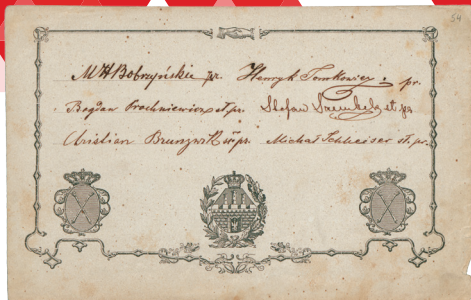 54
MHBobryński pr. Henryk Tomkowicz. pr.
Bogdan Prochniewicz st. pr. Stefan st. pr.
Christian pr. Michał Schleiser st. pr.